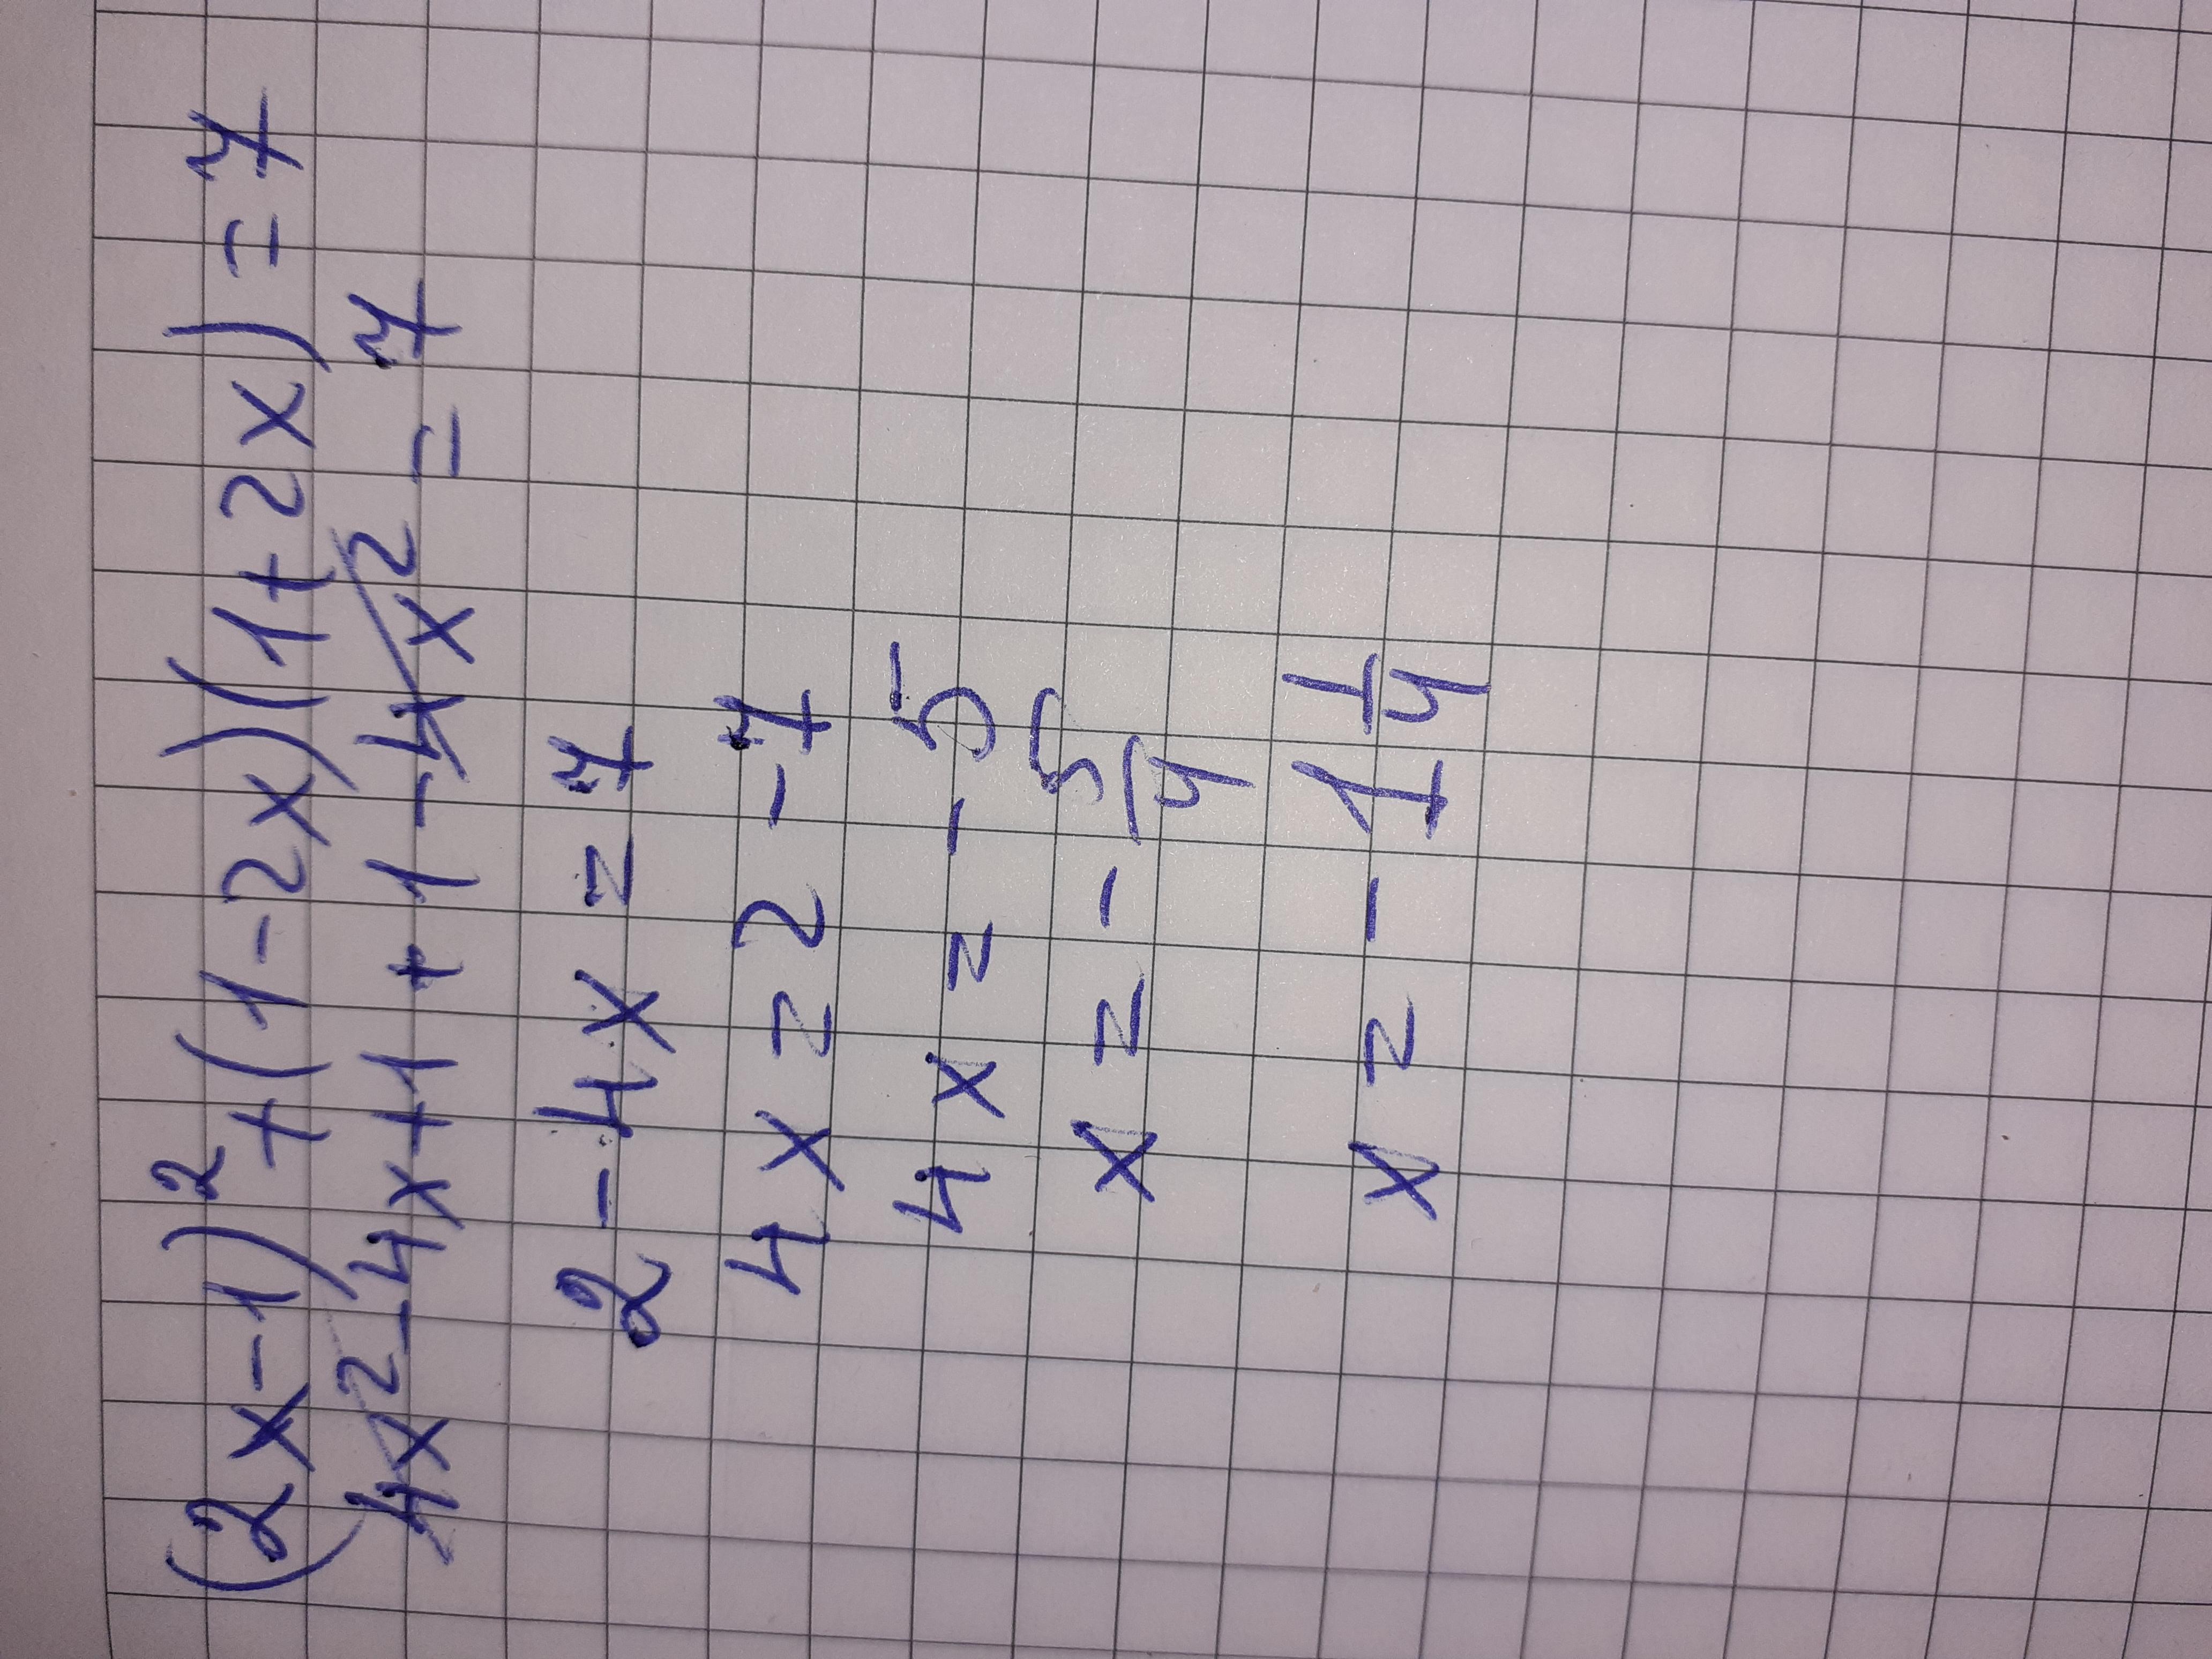 (2x-1)²+(1-2x)(1+2x)=7
4x²-4x+1+1-4x²=7
2-4x=7
4x=2-7
4x=-5
x=-5/4
x=-1 1/4